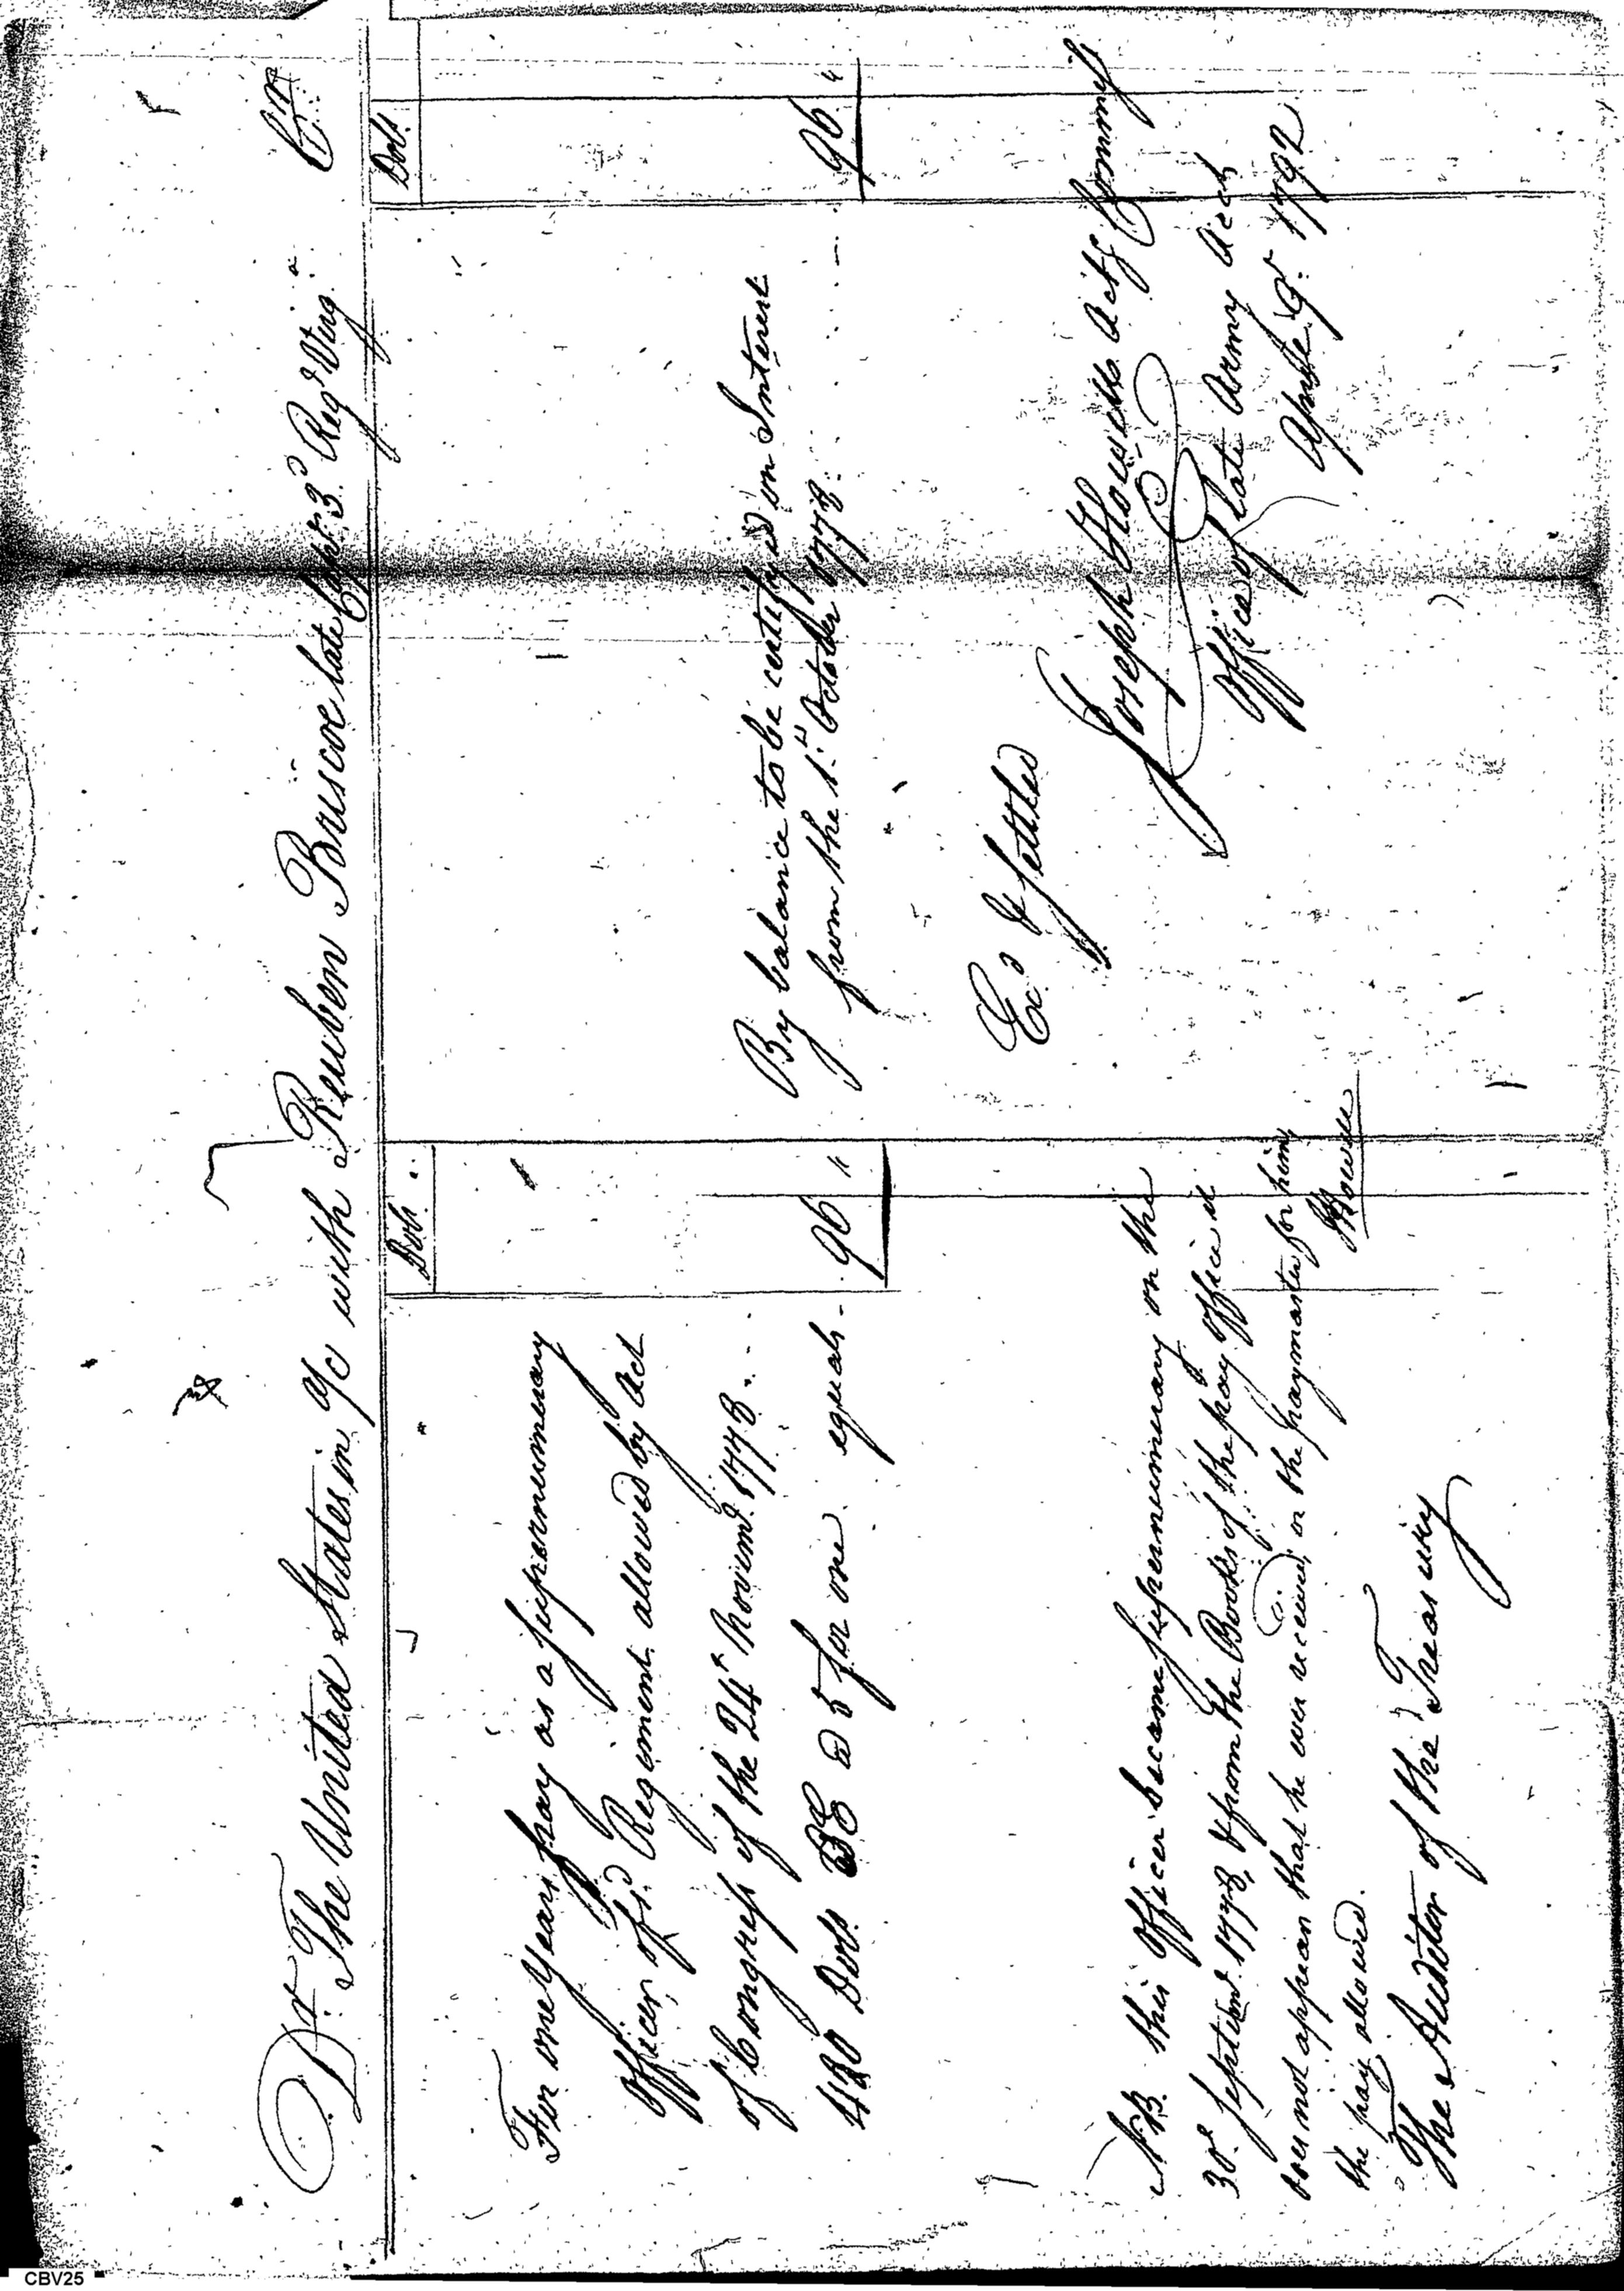 Dr. The United States in a/c with Reuben Briscoe late Capt. 3d Regt Virga. Cr
Dols.
For one Years pay as a supernumerary
Officer, of sd. Regiment allowed by Act
of Congress of the 24th Novemr. 1778
480 Dols. @ 5 for one equal 96 "
Dols.
By balance to be certifyed on Interest
from the 1st October 1778. 96 "
Ed. & Settled
Joseph Howell Actg Commiss
Office of late Army Accts
April 9. 1792
NB. this Officer became supernumerary on the
30th Septemr. 1778, & from the Books of the pay Office it
does not appear that he ever received, or the paymaster for him,
the pay allowed.
JHowell
The Auditor of the Treasury
CBV25